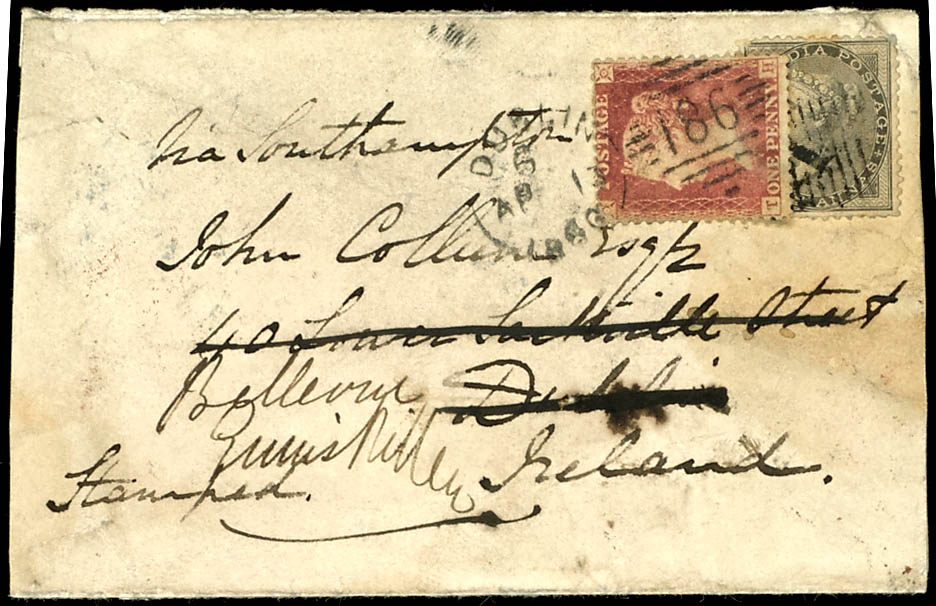 Via Southampton
John Collum Esqr
40 Lower Sackville Street
Bellevue Dublin
Enniskillen Ireland.
Stamped.
DUBLIN
AP
1860
186
POSTAGE
ONE PENNY
T H
INDIA POSTAGE
ANNAS